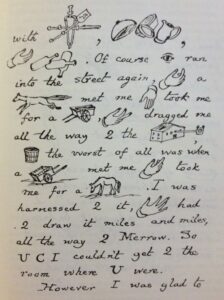 with , .
. Of course ran
into the street again, a
met me took me
for a , dragged me
all the way 2 the
the worst of all was when
a met me took
me for a . I was
harnessed 2 it, had
2 draw it miles and miles,
all the way 2 Merrow. So
U C I couldn't get 2 the
room where U were.
However I was glad to